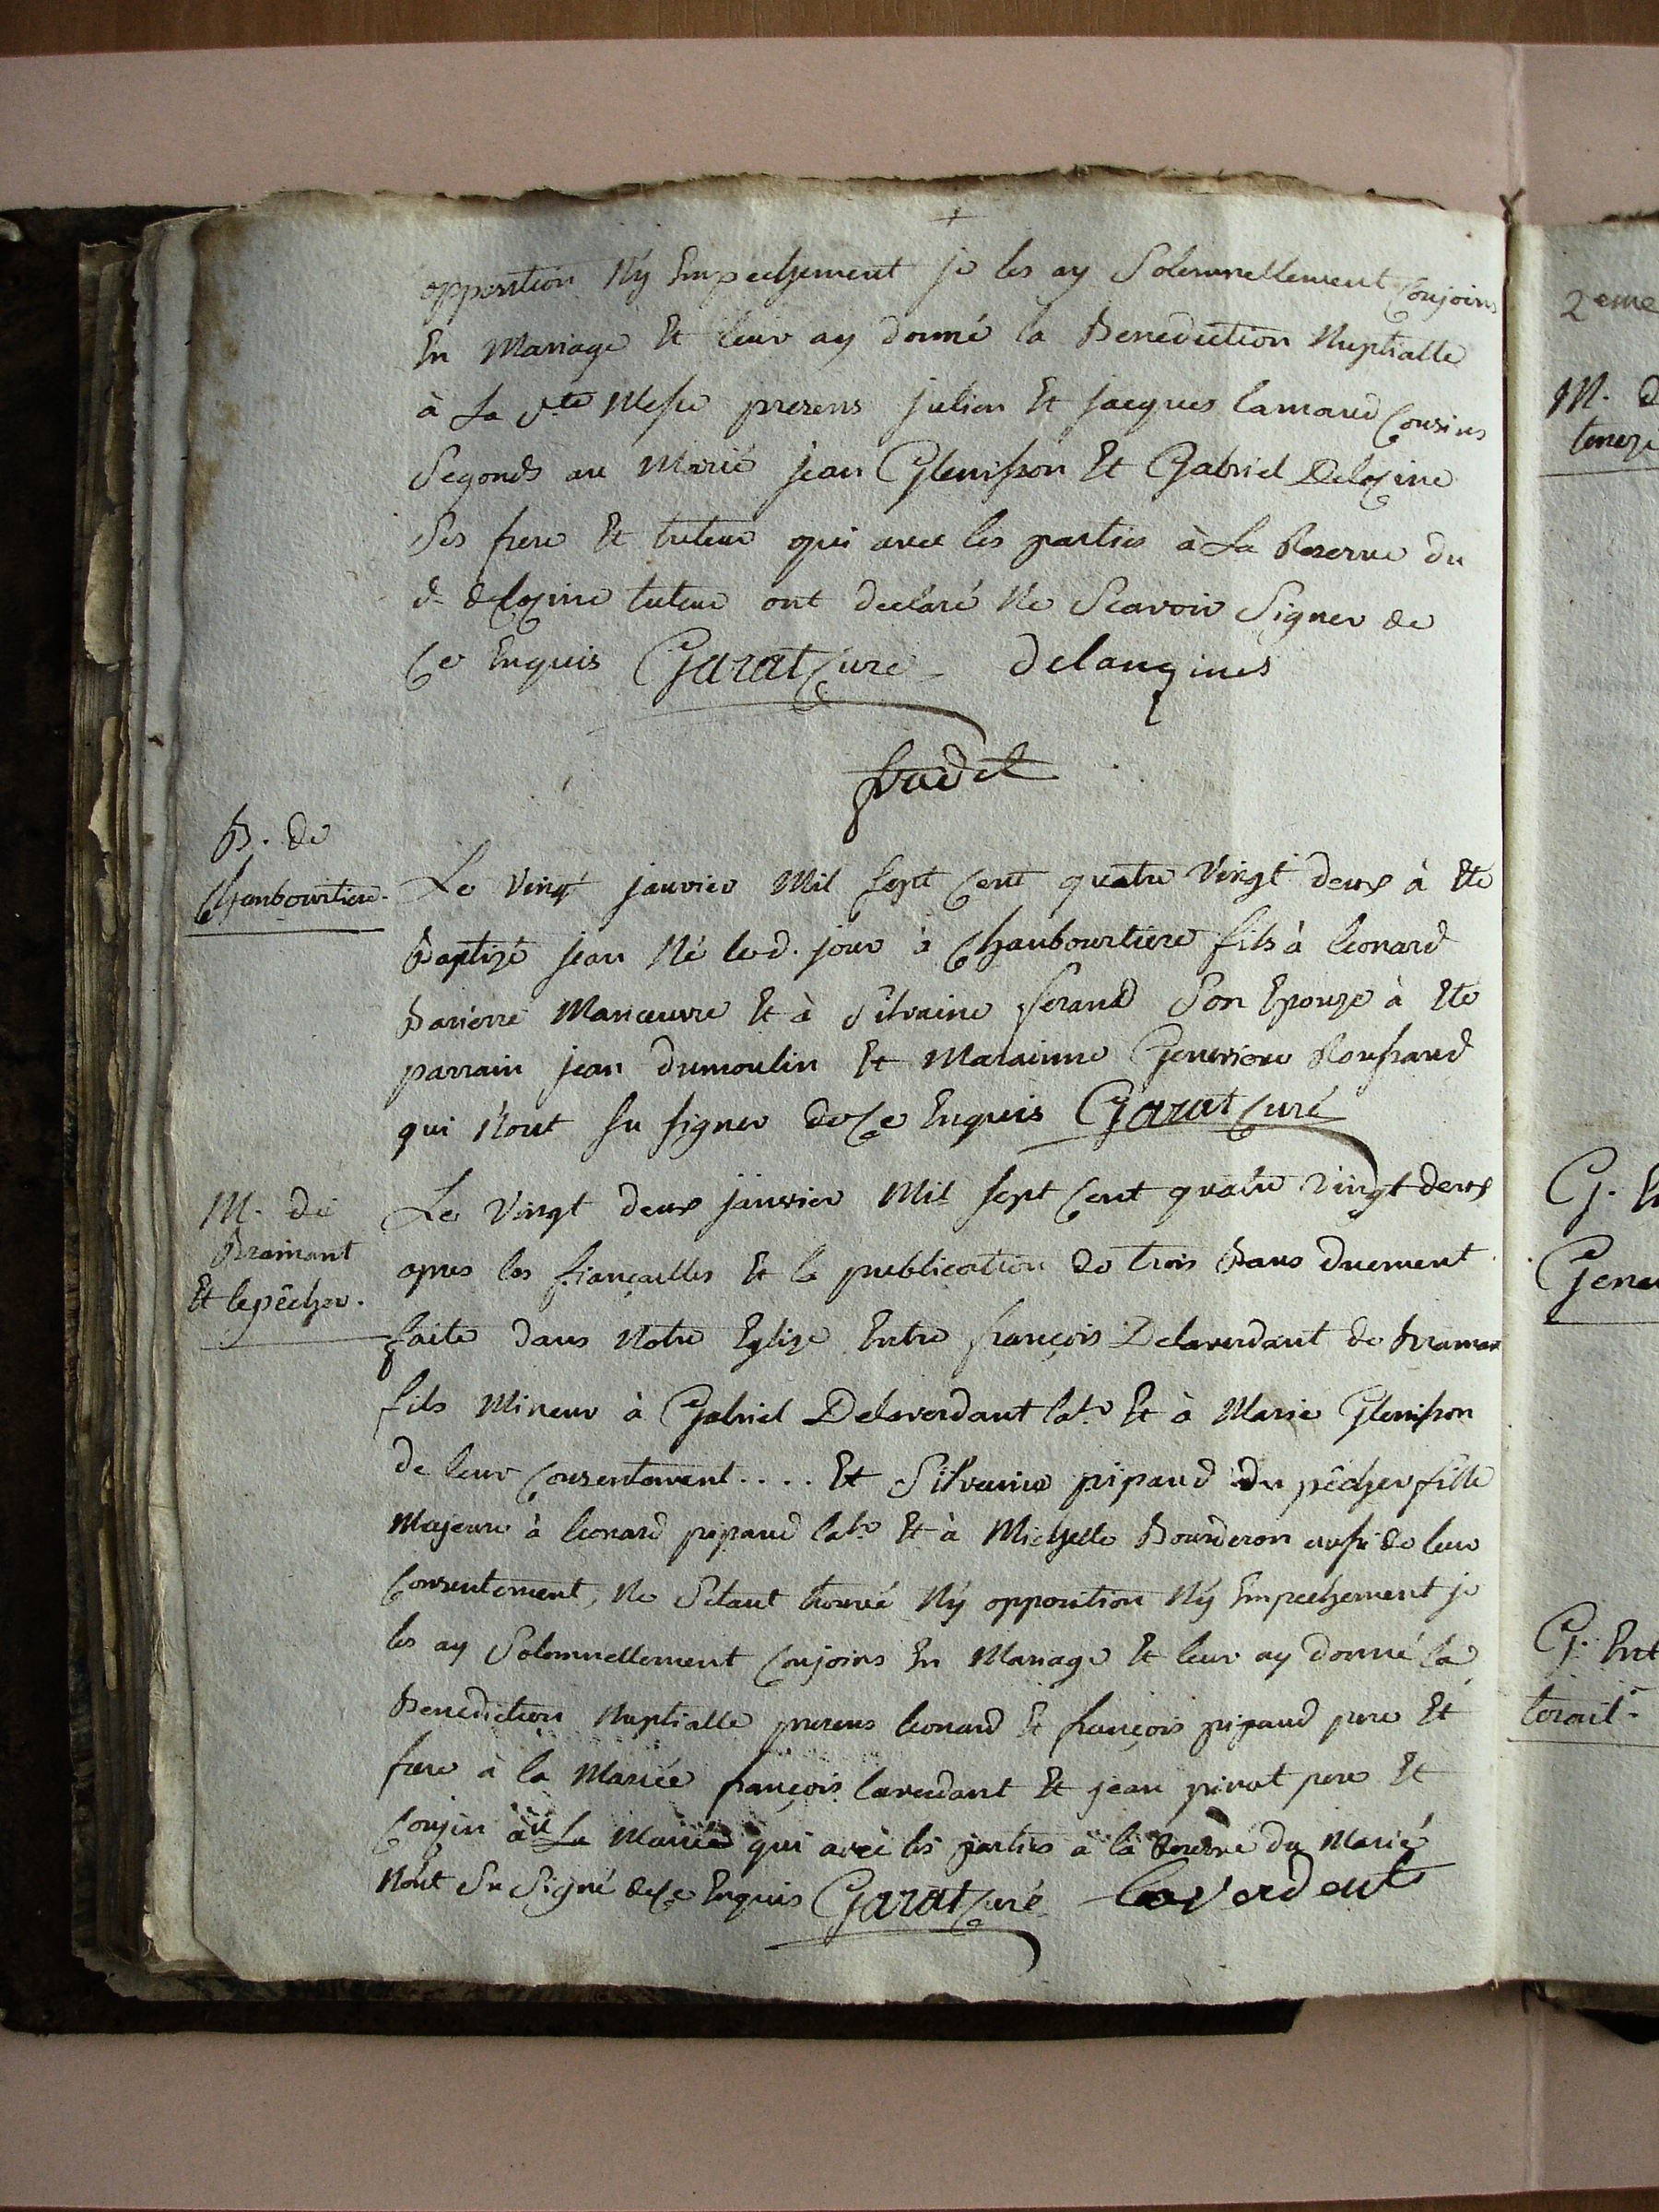 opposition Ny Empechement je les ay Solemnellement Conjoins
En Mariage Et leur ay donné la Benediction Nuptialle
à La Ste Messe presens julien Et jacques lamaud Cousins
Segonds au Marié jean Glenisson Et Gabriel Delozine
Ses frere Et tuteur qui avec les parties à La Reserve du
d. delozine tuteur ont declaré Ne Scavoir Signer de
Ce Enquis Garat Curé delangines
B. de
Chanbourtiere.
Le Vingt janvier Mil Sept Cent quatre Vingt deux à Eté
Baptizé jean Né led. jour à Chanbourtiere fils à leonard
Barierre Manœuvre Et à Silvaine ferand Son Epouze à Eté
parrain jean dumoulin Et Marainne Genevieve Roussaud
qui N'ont Su signer de Ce Enquis Garat Curé
M. de
Bramant
Et le pêcher.
Le Vingt deux janvier Mil sept Cent quatre vingt deux
apres les fiançailles Et la publication de trois Bans duement
faite dans Notre Eglize Entre françois Delaverdant de Braman
fils Mineur à Gabriel Delaverdant labr Et à Marie Glenisson
de leur Consentement .... Et Silvaine pipaud du pêcher fille
Majeure à leonard pipaud labr Et à Michelle Bourderon aussi de leur
Consentement, Ne S'étant trouvé Ny opposition Ny Empechement je
les ay Solemnellement Conjoins En Mariage Et leur ay donné la
Benediction Nuptialle presens leonard Et françois pipaud pere Et
frere à la Mariée françois laverdant Et jean pinot pere Et
Coujin au Marié qui avec les parties à la Reserve du Marié
N'ont Su Signé de Ce Enquis Garat Curé laverdant
2eme
M. d
G. E
Gene
G. Ent